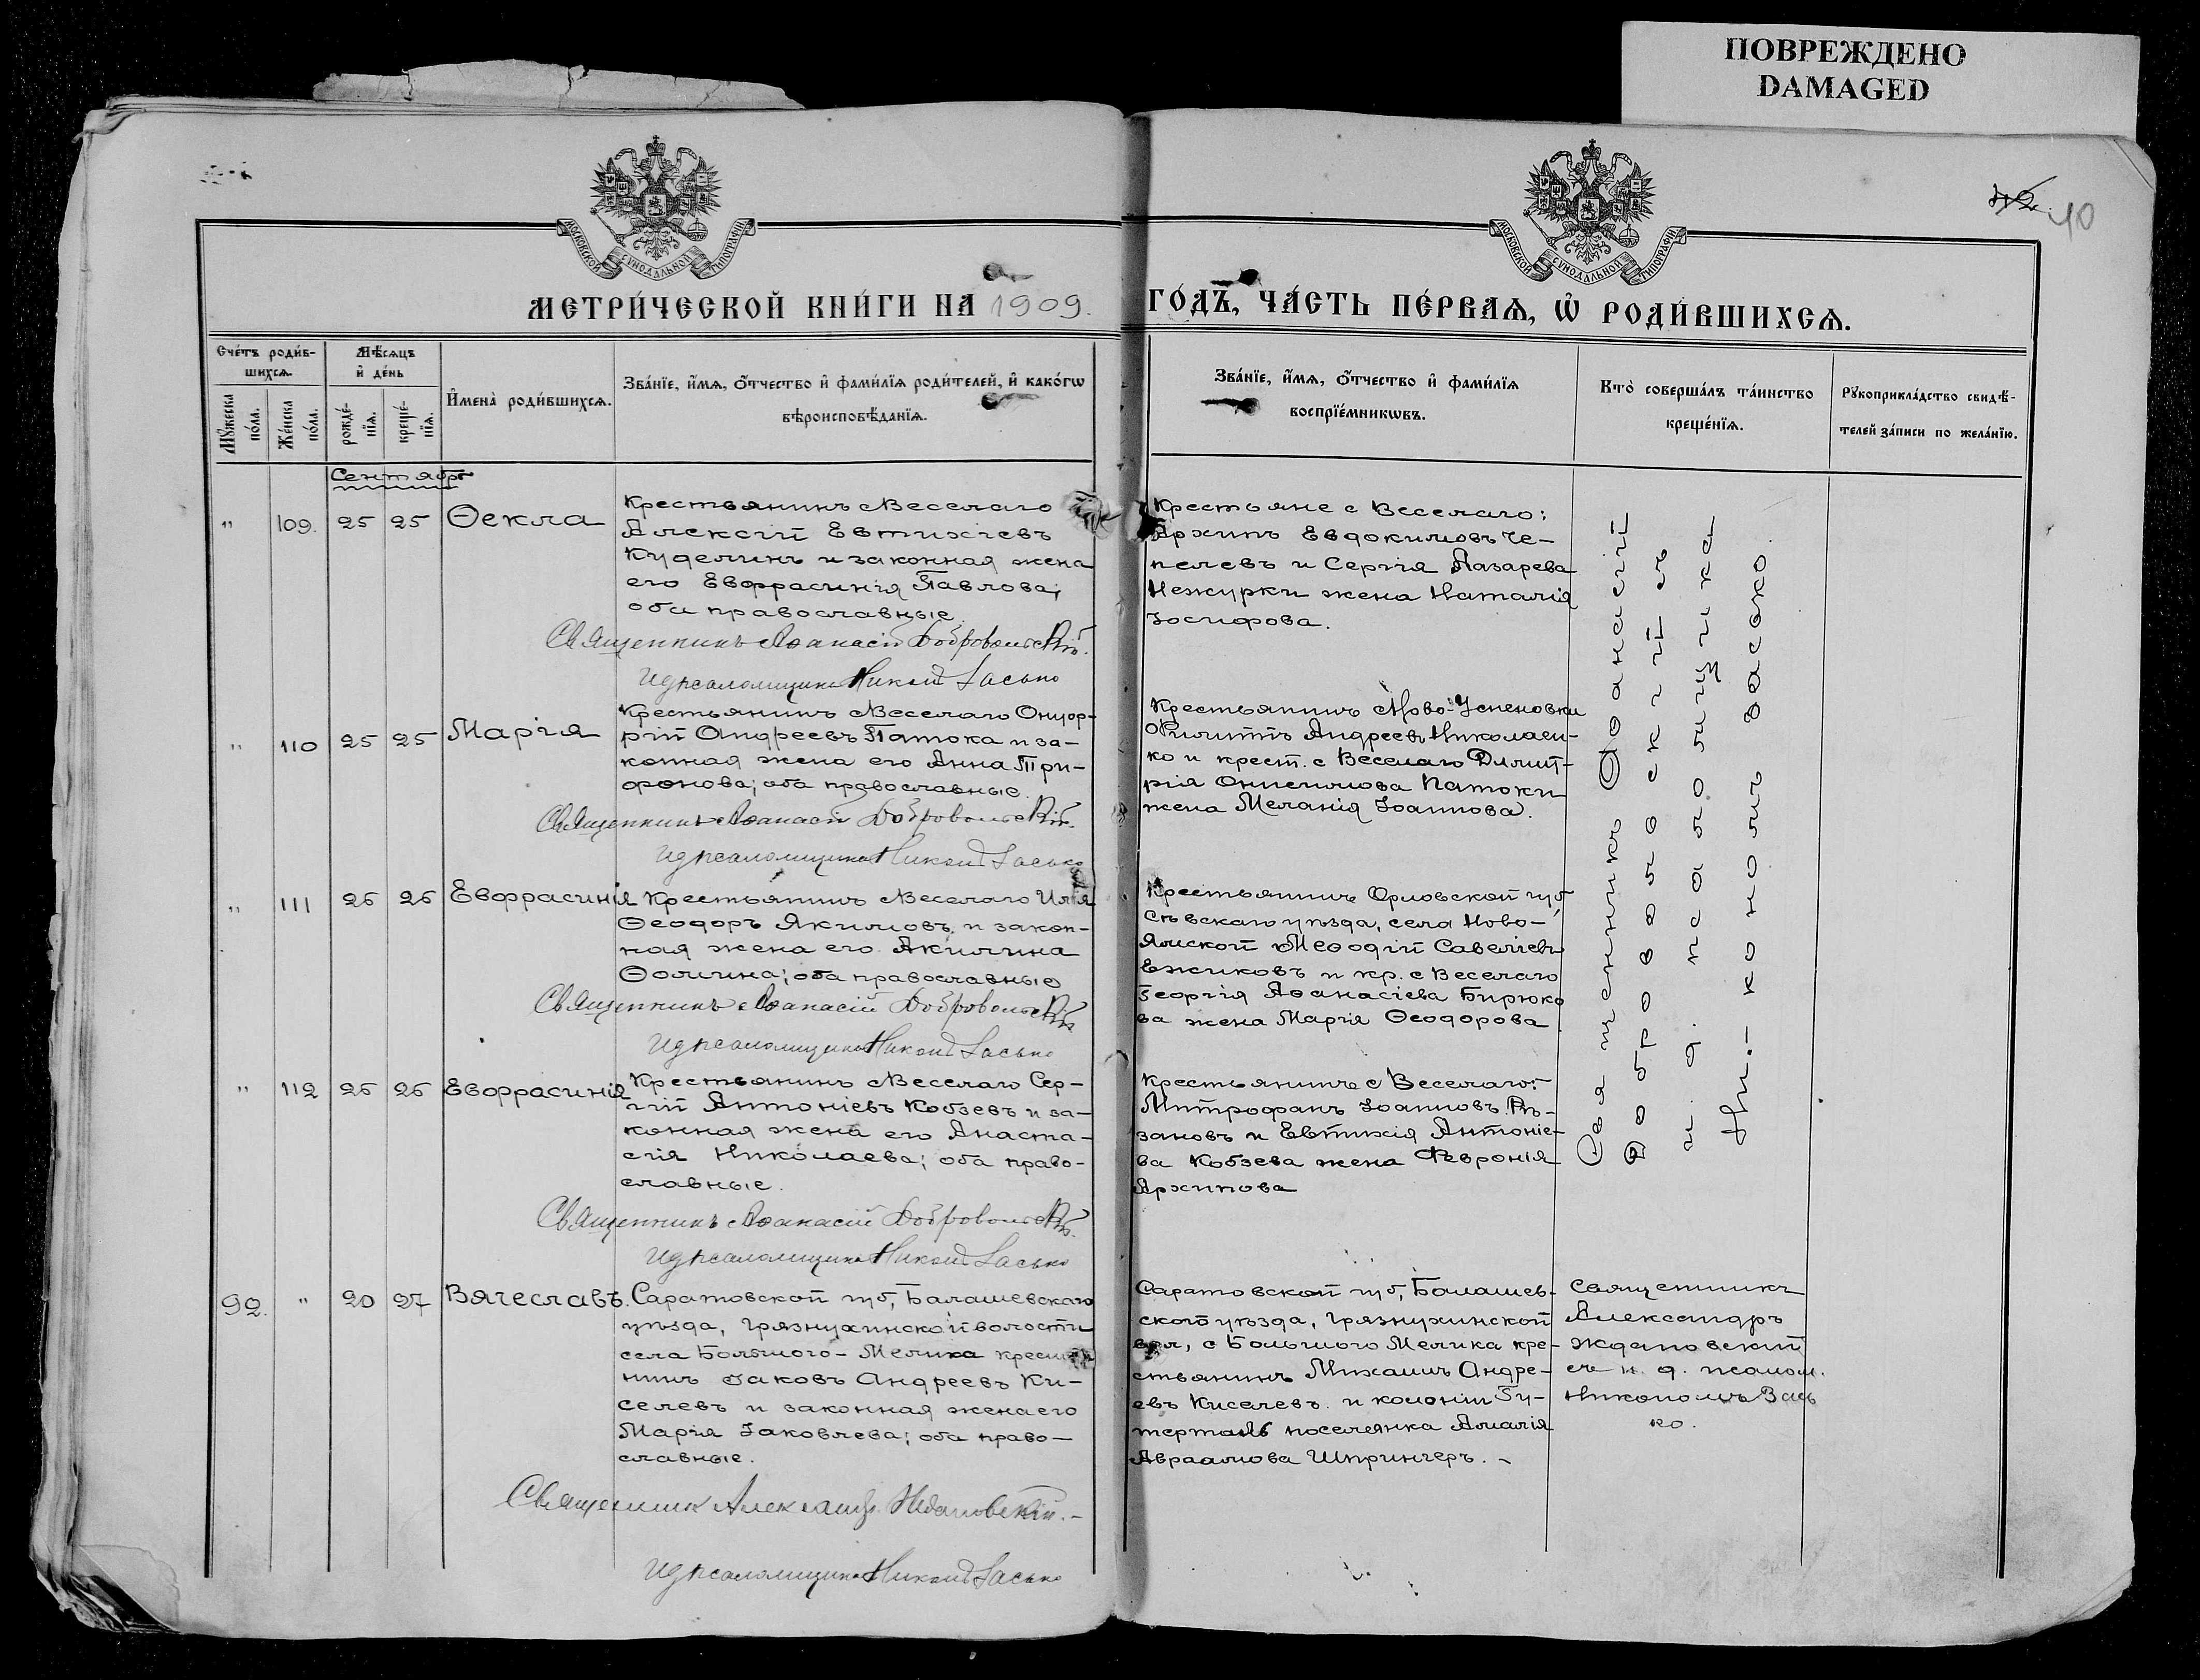 ПОВРЕЖДЕНО
DAMAGED
40
МОСКОВСКОЙ СѴНОДАЛЬНОЙ ТИПОГРАФІИ
МОСКОВСКОЙ СѴНОДАЛЬНОЙ ТИПОГРАФІИ
МЕТРИ́ЧЕСКОЙ КНИ́ГИ НА 1909.
ГО́ДЪ, ЧА́СТЬ ПЕ́РВАѦ, Ѡ҆ РОДИ́ВШИХСѦ.
Сче́тъ роди́в-
шихсѧ.
Мꙋ́жеска
по́ла.
Же́нска
по́ла.
Мѣ́сѧцъ
и҆ де́нь
рожде́-
нїѧ.
креще́-
нїѧ.
И҆мена̀ роди́вшихсѧ.
Зва́нїе, и҆́мѧ, ѻ҆́тчество и҆ фами́лїѧ роди́телей, и҆ како́гѡ
вѣроисповѣ́данїѧ.
Зва́нїе, и҆́мѧ, ѻ҆́тчество и҆ фами́лїѧ
воспрїе́мникѡвъ.
Кто̀ соверша́лъ та́инство
креще́нїѧ.
Рꙋкоприкла́дство свидѣ́-
телей за́писи по жела́нїю.
Сентябрь
" 109. 25 25 Ѳекла
Крестьянинъ с Веселаго
Алексій Евтихіевъ
Куделинъ и законная жена
его Евфрасинія Павлова;
оба православные.
Священникъ Аѳанасій Добровольскій.
И д псаломщика Никонъ Засько
Крестьяне с Веселаго:
Архипъ Евдокимовъ Че-
пелевъ и Сергія Лазарева
Нежурки жена Наталія
Іосифова.
" 110 25 25 Марія
Крестьянинъ с Веселаго Онуф-
рій Андреевъ Патока и за-
конная жена его Анна Три-
фонова; оба православные.
Священникъ Аѳанасій Добровольскій.
И д псаломщика Никонъ Засько
Крестьянинъ с Ново-Успеновки
Филиппъ Андреевъ Николаен-
ко и крест. с Веселаго Димит-
рія Онисимова Патоки
жена Меланія Іоаннова.
" 111 25 25 Евфрасинія
Крестьянинъ с Веселаго
Ѳеодоръ Якимовъ и закон-
ная жена его Акилина
Ѳомина; оба православные
Священникъ Аѳанасій Добровольскій
И д псаломщика Никонъ Засько
Крестьянинъ Орловской губ
Сѣвскаго уѣзда, села Ново-
Ямской Меѳодій Савеліевъ
Ежиковъ и кр. с Веселаго
Георгія Аѳанасіева Бирюко
ва жена Марія Ѳеодорова.
" 112 25 25 Евфрасинія
Крестьянинъ с Веселаго Сер-
гій Антоніевъ Кобзевъ и за-
конная жена его Анаста-
сія Николаева; оба право-
славные.
Священникъ Аѳанасій Добровольскій.
И д псаломщика Никонъ Засько
Крестьянинъ с Веселаго:
Митрофанъ Іоанновъ Рѣ-
зановъ и Евтихія Антоніе-
ва Кобзева жена Февронія
Архипова
Священникъ Аѳанасій
Добровольскій съ
и. д. псаломщика
Ни-кономъ Засько.
92. " 20 27 Вячеславъ.
Саратовской губ, Балашевскаго
уѣзда, Грязнухинской волости
села Большого-Мелика крестья
нинъ Іаковъ Андреевъ Ки-
селевъ и законная жена его
Марія Іаковлева; оба право-
славные.
Священник Александръ Ждановскій.-
И д псаломщика Никонъ Засько
Саратовской губ, Балашев-
ского уѣзда, Грязнухинской
вол, с Большого Мелика кре-
стьянинъ Михаилъ Андре-
евъ Киселевъ. и колоніи Гу-
терталь поселянка Амалія
Авраамова Шпрингеръ. -
Священникъ
Александръ
Ждановскій
съ и. д. псалом.
Никономъ Зась
ко.